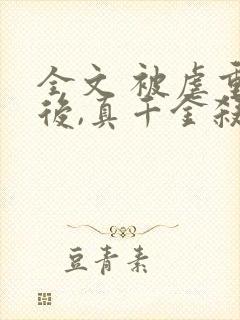 全文 被虐重
後,真千金殺
豆青素